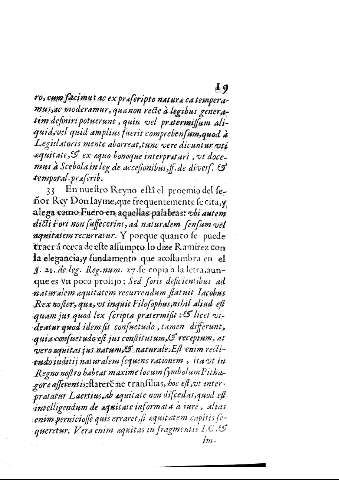 19
ro, cum facimus ac ex prascripto natura ea tempera-
mus, ac moderamur, qua non recte à legibus genera-
tim definiri potuerunt, quin vel pratermissum ali-
quid, vel quid amplius fuerit comprehensum, quod à
Legislatoris mente aborreat, tunc vere dicuntur vti
aquitate, & ex aquo bonoque interpratari, vt doce-
mus à Scebola in leg de accesionibus, ff. de divers. &
temporal. prascrib.
33 En nuestro Reyno està el proemio del se-
ñor Rey Don Iayme, que frequentemente se cita, y
alega como Fuero en aquellas palabras: vbi autem
dicti Fori non suffecerint, ad naturalem sensum vel
aquitatem recurratur. Y porque quanto se puede
traer à cerca de este assumpto, lo dize Ramirez con
la elegancia, y fundamento que acostumbra en el
§. 21. de leg. Reg. num. 27. se copia a la letra, aun-
que es vn poco prolijo: Sed foris deficientibus ad
naturalem aquitatem recurrendum statuit Iacobus
Rex noster, qua, vt inquit Filosophus, nihil aliud est
quam jus quod lex scripta pratermisit: & licet vi-
deatur quod idem sit consuetudo, tamen differunt,
quia consuetudo est jus constitutum, & receptum, at
vero aquitas jus natum, & naturale: Est enim recti-
tudo iuditij naturalem sequens rationem, ita vt in
Regno nostro habeat maxime locum symbolum Pitha-
gore asserentis: stateram ne transilias, hoc est, vt inter-
pratatur Laertius, ab aquitate non discedas, quod est
intelligendum de aquitate informata à iure, alias
enim perniciosse quis erraret, si aquitatem capitis se-
queretur. Vera enim aquitas in fragmentis I.C. &
im-